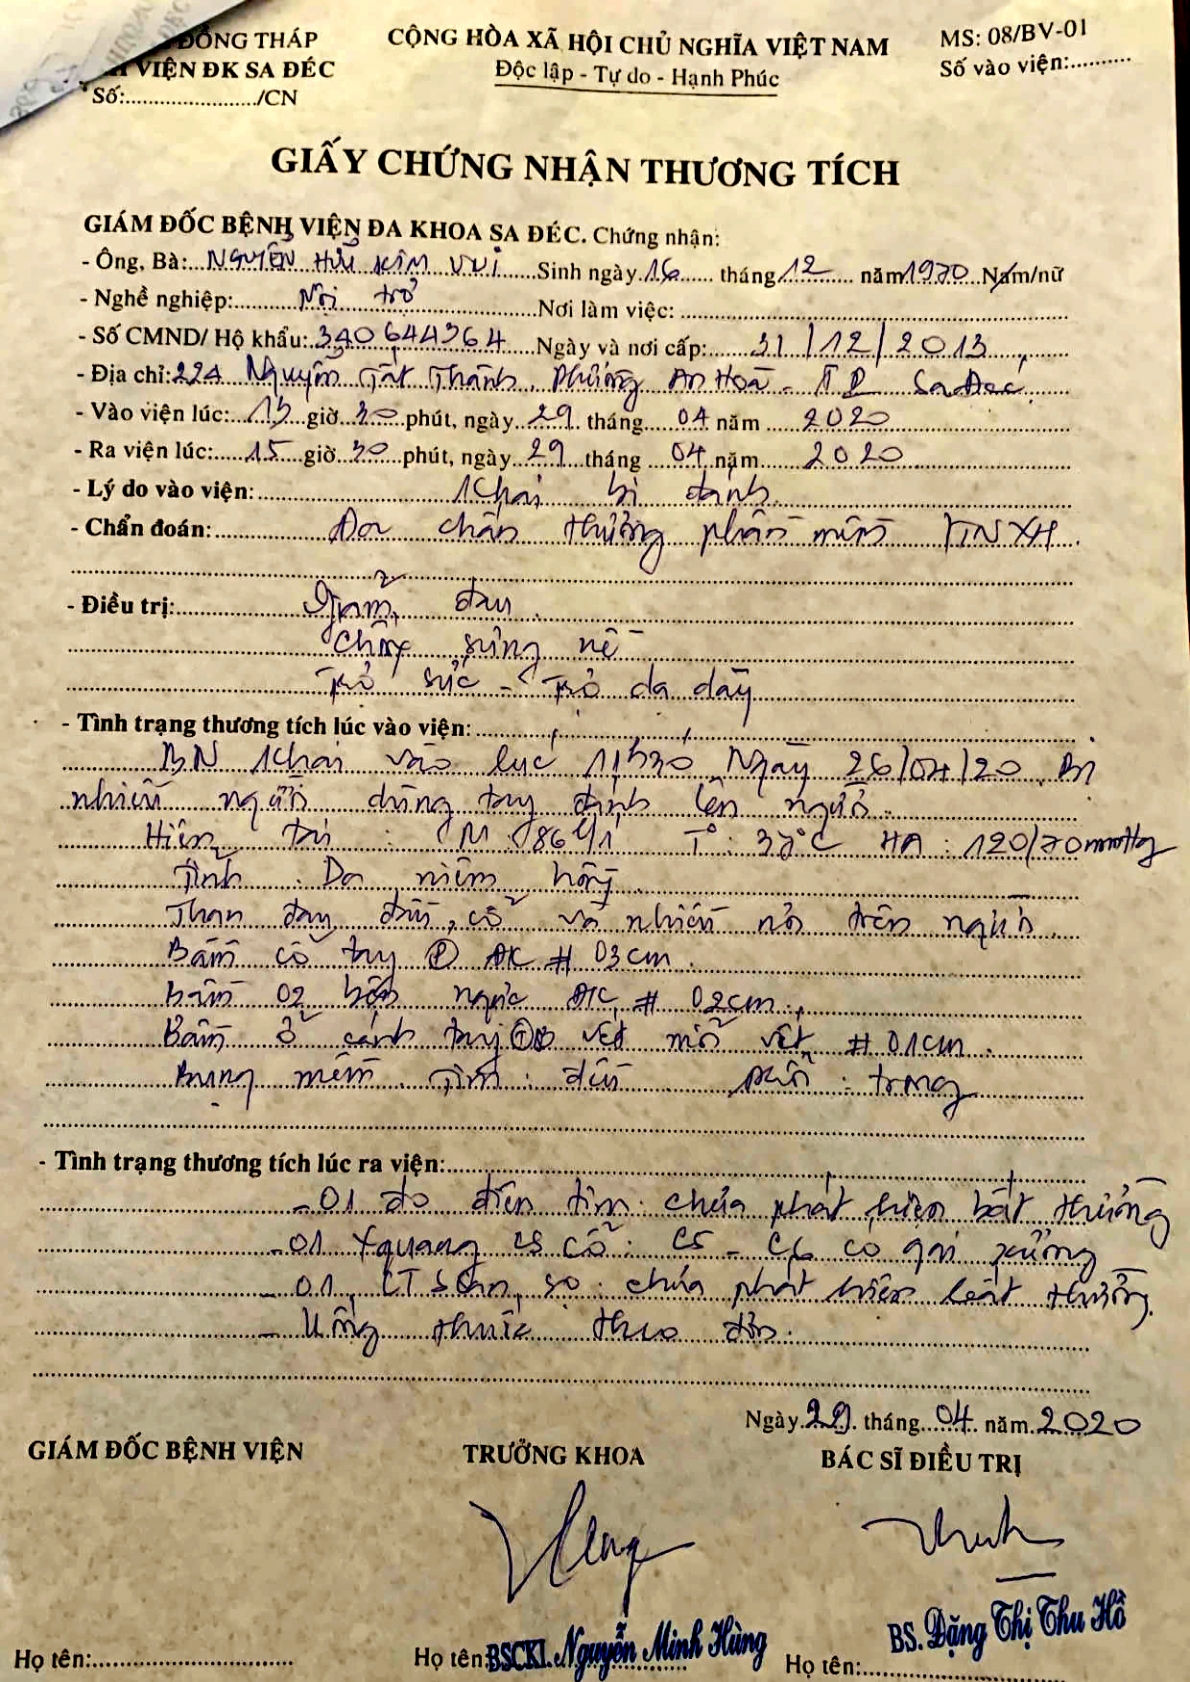 ĐỒNG THÁP
VIỆN ĐK SA ĐÉC
Số:......................./CN
CỘNG HÒA XÃ HỘI CHỦ NGHĨA VIỆT NAM
Độc lập - Tự do - Hạnh Phúc
MS: 08/BV-01
Số vào viện:..........
GIẤY CHỨNG NHẬN THƯƠNG TÍCH
GIÁM ĐỐC BỆNH VIỆN ĐA KHOA SA ĐÉC. Chứng nhận:
- Ông, Bà: NGUYỄN HỮU KIM VUI Sinh ngày 16 tháng 12 năm 1970 Nam/nữ
- Nghề nghiệp: Nội trợ Nơi làm việc:
- Số CMND/ Hộ khẩu: 340644364 Ngày và nơi cấp: 31/12/2013
- Địa chỉ: 224 Nguyễn Tất Thành Phường An Hoà - TP Sa Đéc
- Vào viện lúc: 13 giờ 30 phút, ngày 29 tháng 04 năm 2020
- Ra viện lúc: 15 giờ 30 phút, ngày 29 tháng 04 năm 2020
- Lý do vào viện: Khai bị đánh
- Chẩn đoán: Đa chấn thương phần mềm TNXH.
- Điều trị: Giảm đau.
Chống sưng nề
Trợ sức - Trợ dạ dày
- Tình trạng thương tích lúc vào viện:
BN khai vào lúc 11h30 Ngày 26/04/20 Bị
nhiều người dùng tay đánh lên người.
Hiện tại: M: 86 l/1' T°: 37°C HA: 120/70mmHg
Tỉnh. Da niêm hồng.
Than đau đầu, cổ và nhiều nơi trên người.
Bầm cổ tay (P) ĐK # 03cm.
Bầm 02 bên ngực ĐK # 02cm.
Bầm ở cánh tay (T) vết mỗi vết # 01cm.
Bụng mềm. Tim: đều. Phổi: trong
- Tình trạng thương tích lúc ra viện:
- 01 đo điện tim: chưa phát hiện bất thường
- 01 Xquang CS cổ: C5 - C6 có gai xương
- 01 CT Scan sọ: chưa phát hiện bất thường.
- Uống thuốc theo đơn.
Ngày 29 tháng 04 năm 2020
GIÁM ĐỐC BỆNH VIỆN
TRƯỞNG KHOA
BÁC SĨ ĐIỀU TRỊ
Họ tên:
Họ tên: BSCKI. Nguyễn Minh Hùng
Họ tên: BS. Đặng Thị Thu Hồ